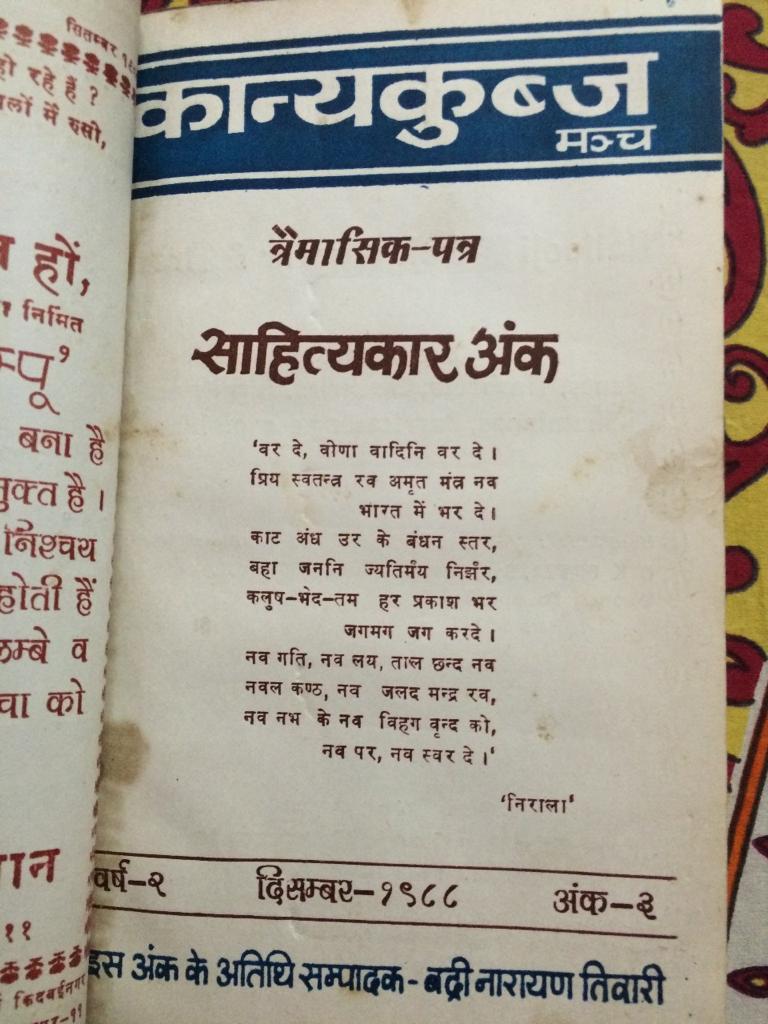 सितम्बर
हो रहे हैं ?
लों में रुसी,
हों,
निर्मित
म्पू'
बना है
युक्त है ।
निश्चय
होती हैं
लम्बे व
को
११
किदवईनगर
कान्यकुब्ज
मञ्च
त्रैमासिक-पत्र
साहित्यकार अंक
'वर दे, वीणा वादिनि वर दे ।
प्रिय स्वतन्त्र रव अमृत मंत्र नव
भारत में भर दे ।
काट अंध उर के बंधन स्तर,
बहा जननि ज्यतिर्मय निर्झर,
कलुष-भेद-तम हर प्रकाश भर
जगमग जग करदे ।
नव गति, नव लय, ताल छन्द नव
नवल कण्ठ, नव जलद मन्द्र रव,
नव नभ के नव विहग वृन्द को,
नव पर, नव स्वर दे ।'
'निराला'
वर्ष-२ दिसम्बर-१९८८ अंक-३
इस अंक के अतिथि सम्पादक - बद्री नारायण तिवारी